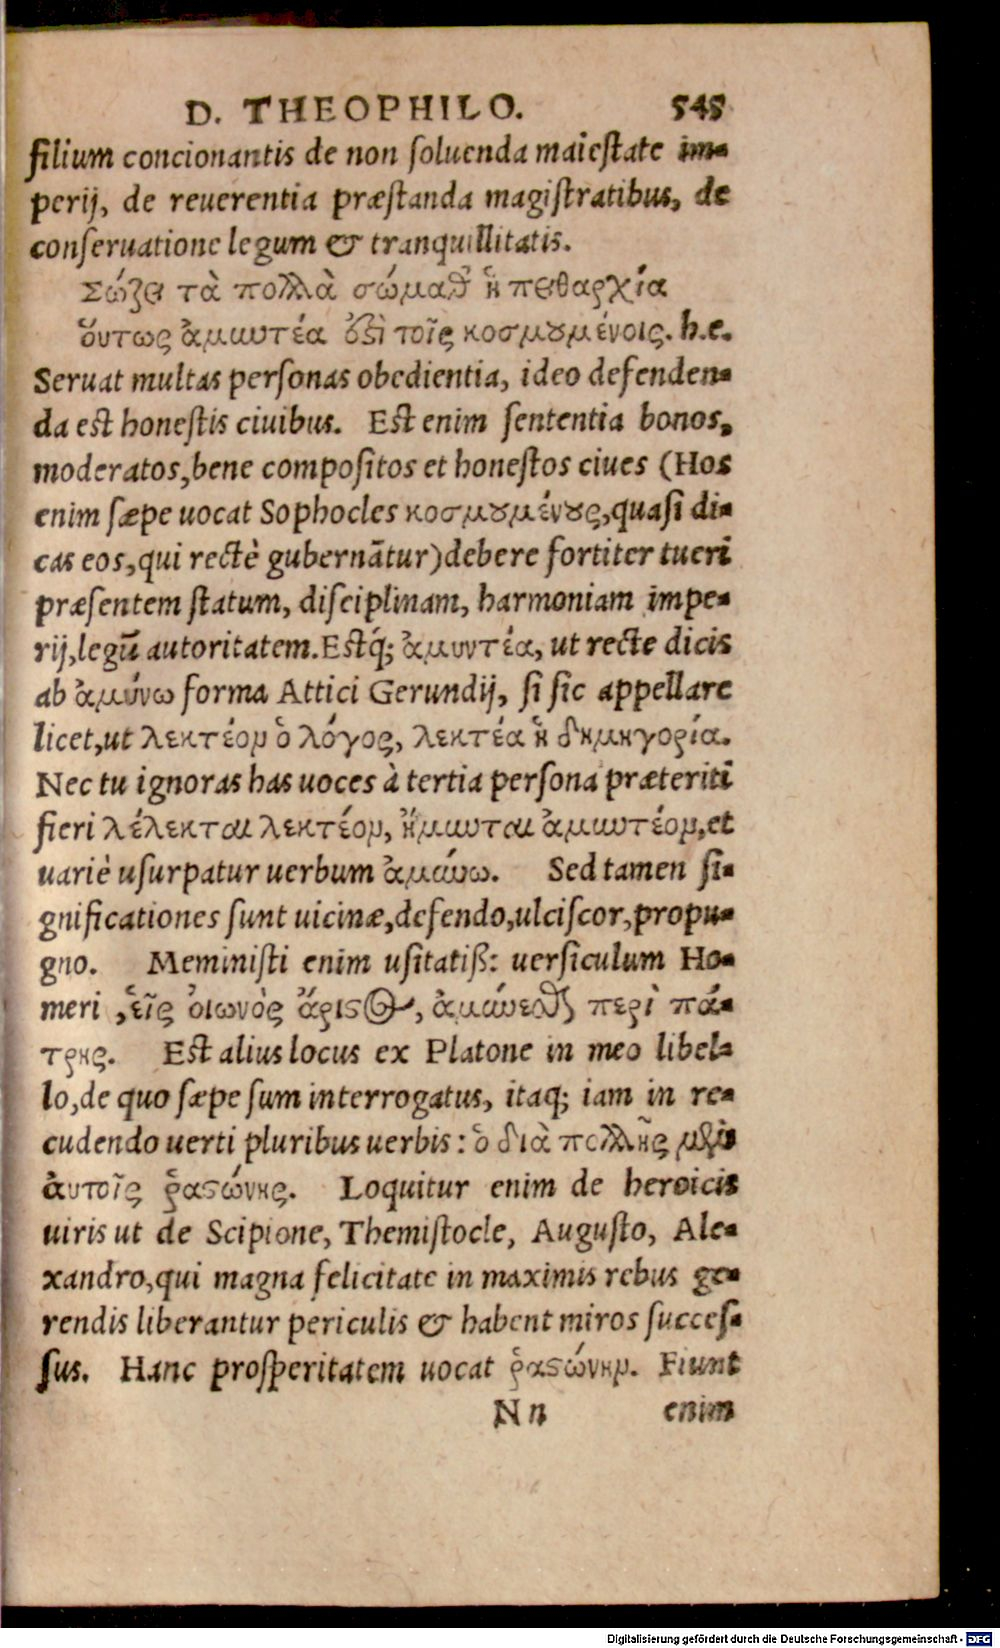 D. THEOPHILO. 545
filium concionantis de non ſoluenda maieſtate im-
perij, de reuerentia præſtanda magiſtratibus, de
conſeruatione legum & tranquillitatis.
Σώζει τὰ πολλὰ σώμαθ᾽ ἡ πειθαρχία
ὅυτως ἀμιωτέα ὅξὶ τοῖς κοσμȣμένοις. h.e.
Seruat multas perſonas obedientia, ideo defenden-
da est honeſtis ciuibus. Est enim ſententia bonos,
moderatos, bene compoſitos et honeſtos ciues (Hos
enim ſæpe uocat Sophocles κοσμȣμένȣς, quaſi di-
cas eos, qui rectè gubernātur) debere fortiter tueri
præſentem ſtatum, diſciplinam, harmoniam impe-
rij, legū autoritatem. Estq́; ἀμυντέα, ut recte dicis
ab ἀμύνω forma Attici Gerundij, ſi ſic appellare
licet, ut λεκτέον ὁ λόγος, λεκτέα ἡ δημηγορία.
Nec tu ignoras has uoces à tertia perſona præteriti
fieri λέλεκται λεκτέον, ἤμιωται ἀμιωτέον, et
uariè uſurpatur uerbum ἀμιώω. Sed tamen ſi-
gnificationes ſunt uicinæ, defendo, ulciſcor, propu-
gno. Meminiſti enim uſitatiß: uerſiculum Ho-
meri, ἑῖς ὀιωνὸς ἄριςος, ἀμιώεσθαι περὶ πά-
τρης. Est alius locus ex Platone in meo libel-
lo, de quo ſæpe ſum interrogatus, itaq; iam in re-
cudendo uerti pluribus uerbis: ὁ διὰ πολλῆς
ἀυτοῖς ῥαςώνης. Loquitur enim de heroicis
uiris ut de Scipione, Themiſtocle, Auguſto, Ale-
xandro, qui magna felicitate in maximis rebus ge-
rendis liberantur periculis & habent miros ſucceſ-
ſus. Hanc proſperitatem uocat ῥαςώνην. Fiunt
Nn enim
Digitalisierung gefördert durch die Deutsche Forschungsgemeinschaft - DFG